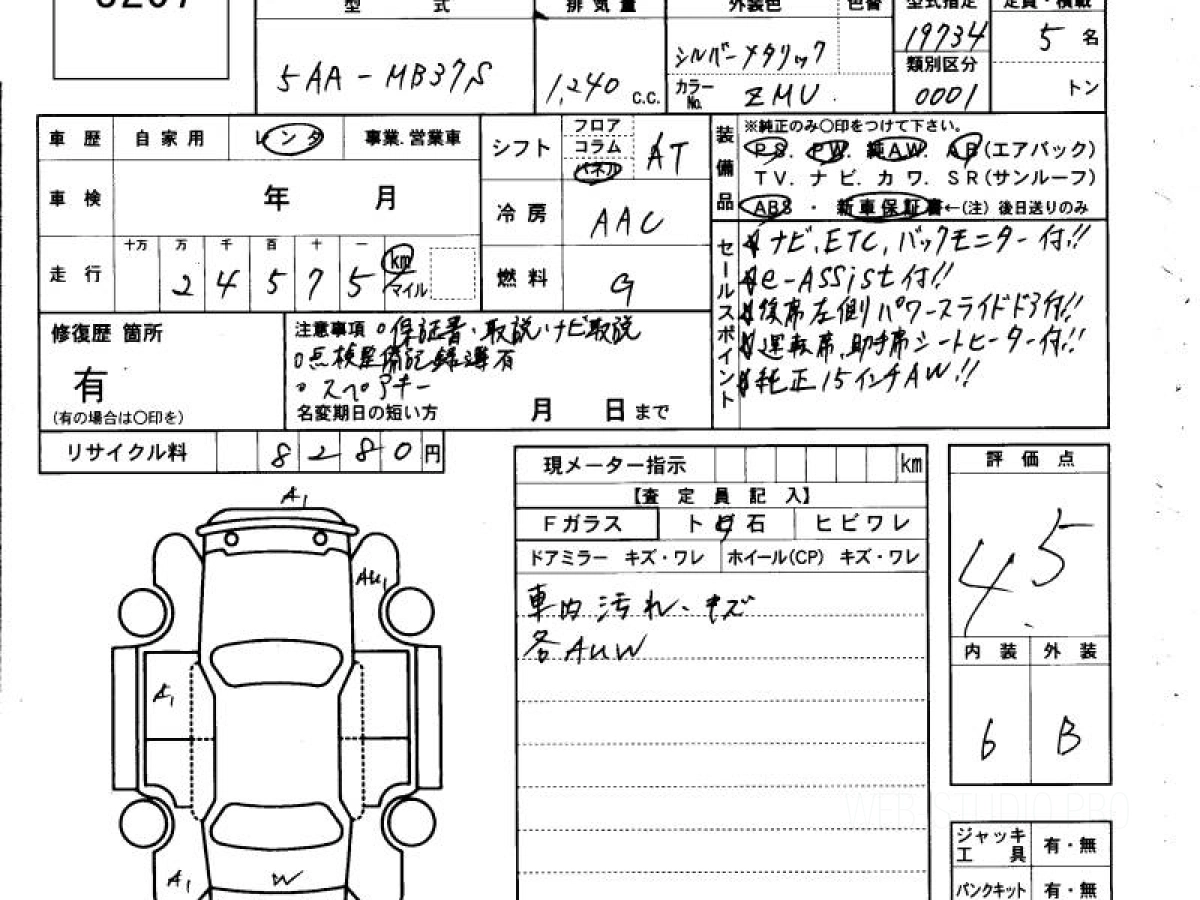 型 式 排気量 外装色 色替 型式指定 定員・積載
5AA-MB37S 1,240 C.C. シルバーメタリック 19734 5 名
カラーNo. ZMU 類別区分 0001 トン
車 歴 自家用 レンタ 事業.営業車
シフト フロア コラム パネル AT
装備品 ※純正のみ○印をつけて下さい。
PS. PW. 純AW. AB(エアバック)
TV. ナビ. カワ. SR(サンルーフ)
ABS ・ 新車保証書←(注) 後日送りのみ
車 検 年 月
冷 房 AAC
走 行 十万 万 千 百 十 一
2 4 5 7 5 km マイル
燃 料 G
セールスポイント
ナビ、ETC、バックモニター付!!
e-Assist付!!
後席左側パワースライドドア付!!
運転席、助手席シートヒーター付!!
純正15インチAW!!
修復歴 箇所
有
(有の場合は○印を)
注意事項 ○保証書・取説・ナビ取説
○点検整備記録簿有
○スペアキー
名変期日の短い方 月 日 まで
リサイクル料 8 2 8 0 円
現メーター指示 km
【査 定 員 記 入】
Fガラス トビ石 ヒビワレ
ドアミラー キズ・ワレ ホイール(CP) キズ・ワレ
車内汚れ、キズ
各AUW
評 価 点
4.5
内 装 外 装
6 B
A1
AU1
A1
A1 W
ジャッキ 工 具 有・無
パンクキット 有・無
WEB STUDIO PRO